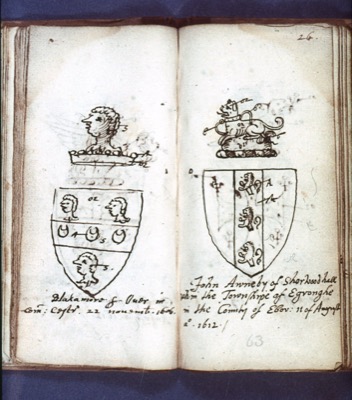 or
4
5
Blakamore of Over in
Com: Cestr. 22 novemb: 1606
26.
John Anneby of Sherwood hall
in the Towneshipe of Egronghe
in the County of Ebor: 11 of August
a° 1612 /
63